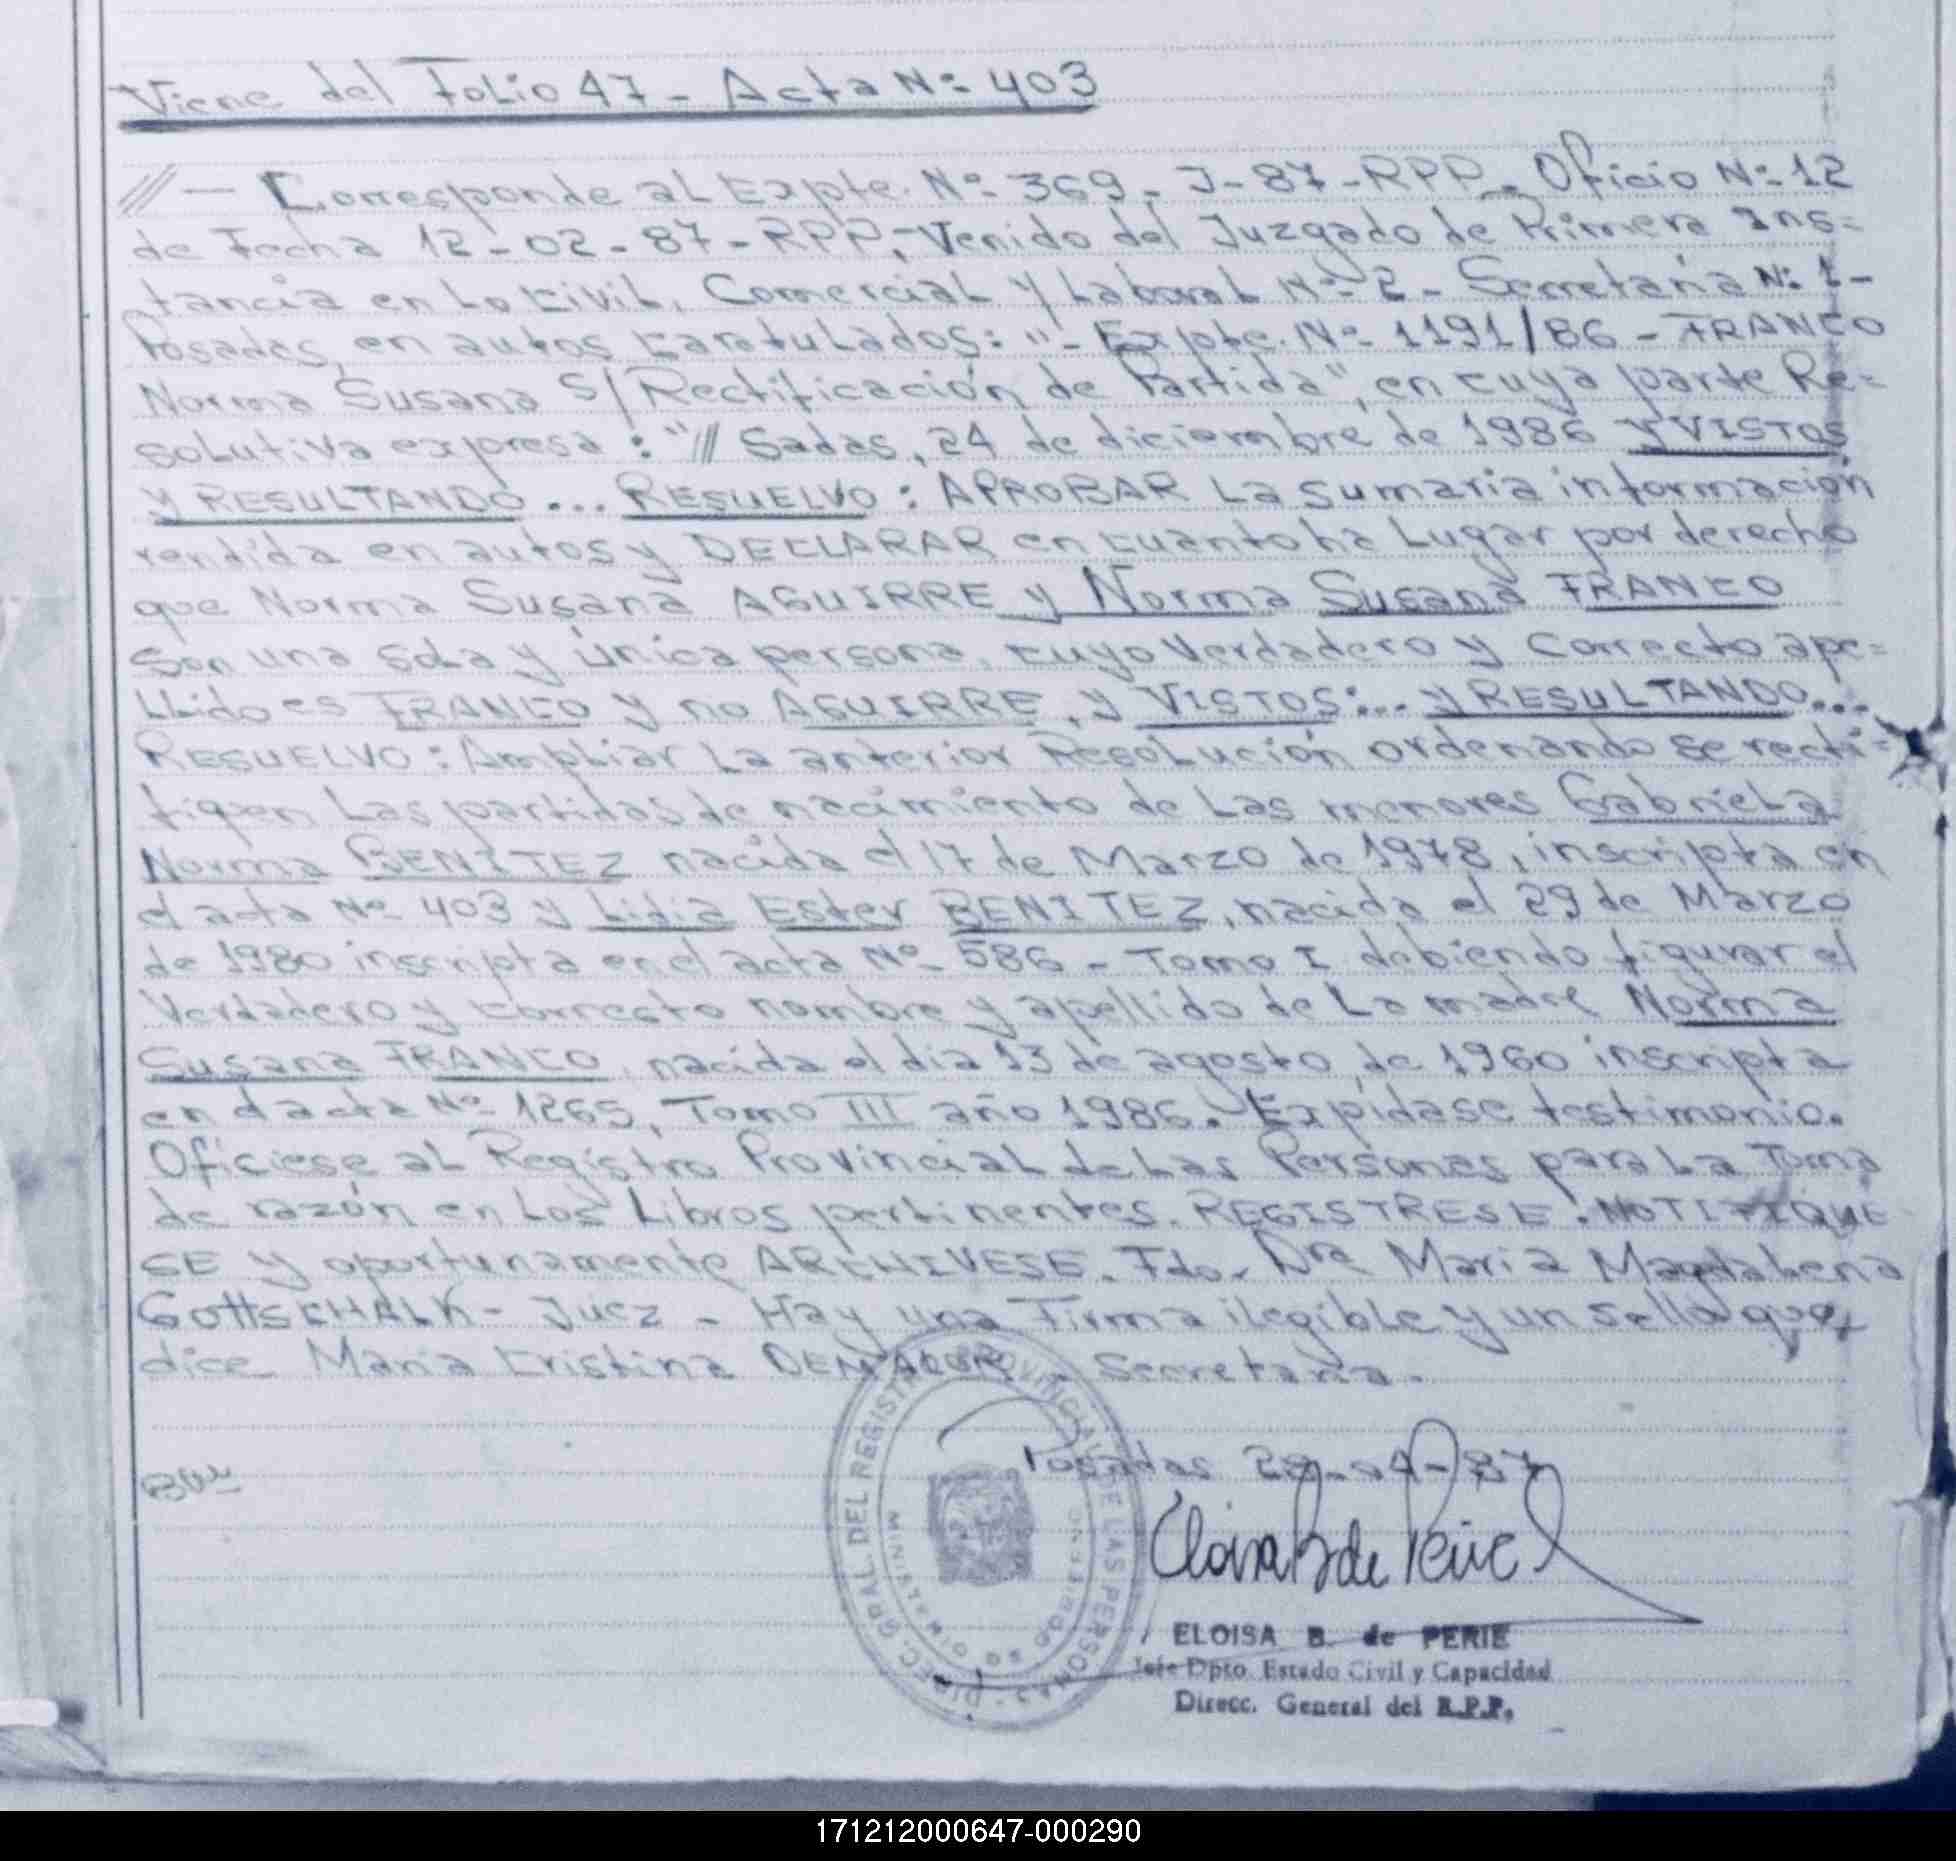 Viene del Folio 47 - Acta Nº 403
/// — Corresponde al Expte. Nº 369 - J - 87 - RPP - Oficio Nº 12
de Fecha 12-02-87 - RPP, - Venido del Juzgado de Primera Ins=
tancia en Lo Civil, Comercial y Laboral Nº 2 - Secretaría Nº 1 -
Posadas, en autos caratulados: "- Expte. Nº 1191/86 - FRANCO
Norma Susana S/Rectificación de Partida", en cuya parte Re=
solutiva expresa: "/// Sadas, 24 de diciembre de 1986 y VISTOS
y RESULTANDO... RESUELVO: APROBAR La sumaria información
rendida en autos y DECLARAR en cuanto ha Lugar por derecho
que Norma Susana AGUIRRE y Norma Susana FRANCO
Son una sola y única persona, cuyo verdadero y correcto ape=
LLido es FRANCO y no AGUIRRE, y VISTOS:... y RESULTANDO...
RESUELVO: Ampliar La anterior Resolución ordenando se recti=
fiquen Las partidas de nacimiento de Las menores Gabriela
Norma BENITEZ nacida el 17 de Marzo de 1978, inscripta en
el acta Nº 403 y Lidia Ester BENITEZ, nacida el 29 de Marzo
de 1980 inscripta en el acta Nº 586 - Tomo I debiendo figurar el
Verdadero y correcto nombre y apellido de La madre Norma
Susana FRANCO, nacida el dia 13 de agosto de 1960 inscripta
en el acta Nº 1265, Tomo III año 1986. Expídase testimonio.
Ofíciese al Registro Provincial de Las Personas para La Toma
de razón en Los Libros pertinentes. REGISTRESE! NOTIFIQUE
SE y oportunamente ARCHIVESE. Fdo. Dra Maria Magdalena
GottSCHALK - Juez - Hay una Firma ilegible y un sello que
dice Maria Cristina - Secretaria.
Posadas 28-04-87
DIREC. GRAL. DEL REGISTRO PROVINCIAL DE LAS PERSONAS
ELOISA B. de PERIE
Jefe Dpto. Estado Civil y Capacidad
Direcc. General del R.P.P.
171212000647-000290